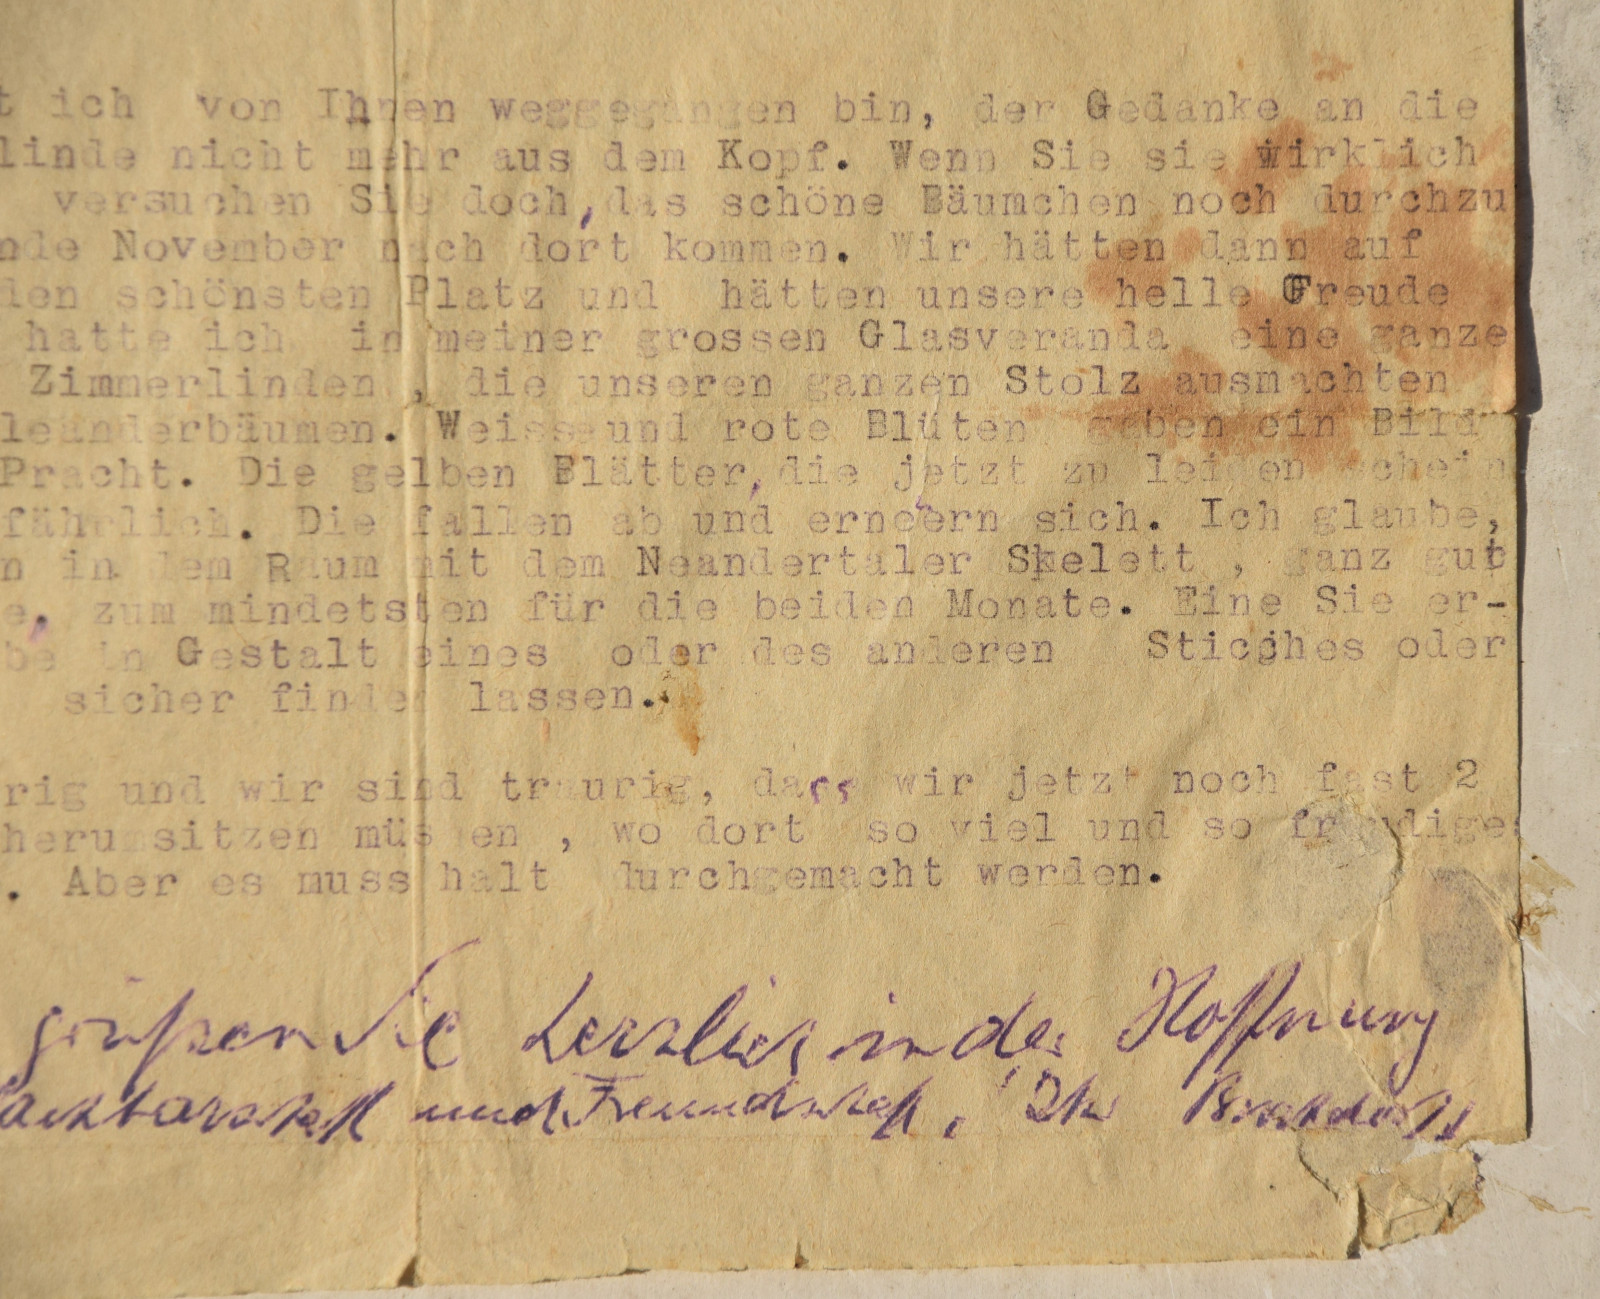 t ich von Ihnen weggegangen bin, der Gedanke an die
linde nicht mehr aus dem Kopf. Wenn Sie sie wirklich
versuchen Sie doch, das schöne Bäumchen noch durchzu
nde November nach dort kommen. Wir hätten dann auf
den schönsten Platz und hätten unsere helle Freude
hatte ich in meiner grossen Glasveranda eine ganze
Zimmerlinden , die unseren ganzen Stolz ausmachten
leanderbäumen. Weisse und rote Blüten gaben ein Bild
Pracht. Die gelben Blätter, die jetzt zu leiden schein
fährlich. Die fallen ab und erneuern sich. Ich glaube,
n in dem Raum mit dem Neandertaler Skelett , ganz gut
e, zum mindetsten für die beiden Monate. Eine Sie er-
be in Gestalt eines oder des anderen Stiches oder
sicher finden lassen.
rig und wir sind traurig, dass wir jetzt noch fast 2
herumsitzen müssen , wo dort so viel und so freudige
. Aber es muss halt durchgemacht werden.
grüßen Sie herzlich in der Hoffnung
achbarschaft und Freundschaft, Ihr